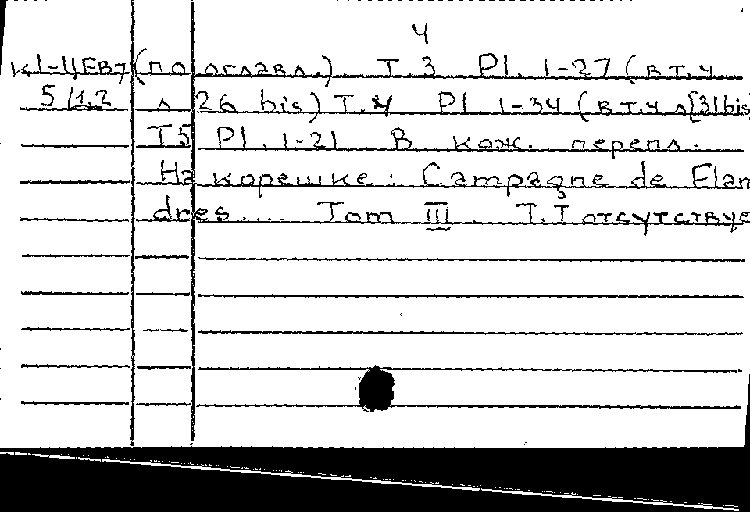 4
К1-ЦЕВ7 (по оглавл.). Т.3 Pl. 1-27 (в т.ч
5/1.2 л 26 bis) Т.4 Pl 1-34 (в т.ч л[31bis
Т5 Pl. 1-21 В кож. перепл.
На корешке: Campagne de Flan
dres.... Tom III. Т.I отсутствуе